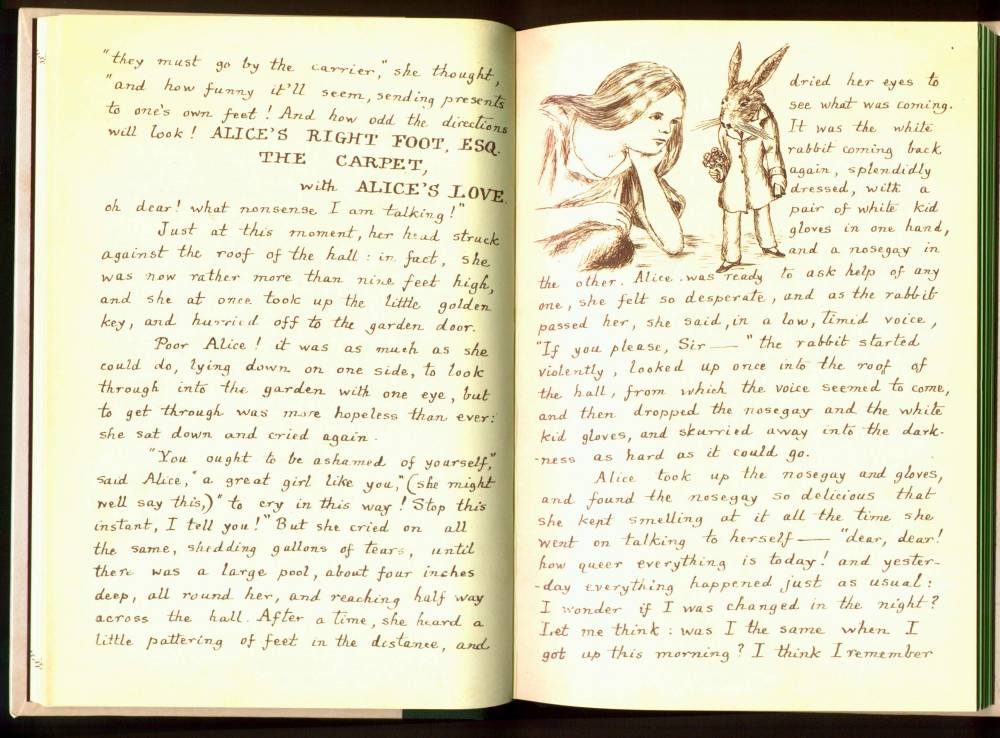 "they must go by the carrier," she thought,
"and how funny it'll seem, sending presents
to one's own feet! And how odd the directions
will look! ALICE'S RIGHT FOOT, ESQ.
THE CARPET,
with ALICE'S LOVE.
oh dear! what nonsense I am talking!"
Just at this moment, her head struck
against the roof of the hall: in fact, she
was now rather more than nine feet high,
and she at once took up the little golden
key, and hurried off to the garden door.
Poor Alice! it was as much as she
could do, lying down on one side, to look
through into the garden with one eye, but
to get through was more hopeless than ever:
she sat down and cried again.
"You ought to be ashamed of yourself,"
said Alice, "a great girl like you," (she might
well say this,) "to cry in this way! Stop this
instant, I tell you!" But she cried on all
the same, shedding gallons of tears, until
there was a large pool, about four inches
deep, all round her, and reaching half way
across the hall. After a time, she heard a
little pattering of feet in the distance, and
dried her eyes to
see what was coming.
It was the white
rabbit coming back
again, splendidly
dressed, with a
pair of white kid
gloves in one hand,
and a nosegay in
the other. Alice was ready to ask help of any
one, she felt so desperate, and as the rabbit
passed her, she said, in a low, timid voice,
"If you please, Sir—" the rabbit started
violently, looked up once into the roof of
the hall, from which the voice seemed to come,
and then dropped the nosegay and the white
kid gloves, and skurried away into the dark-
-ness as hard as it could go.
Alice took up the nosegay and gloves,
and found the nosegay so delicious that
she kept smelling at it all the time she
went on talking to herself— "dear, dear!
how queer everything is today! and yester-
-day everything happened just as usual:
I wonder if I was changed in the night?
Let me think: was I the same when I
got up this morning? I think I remember